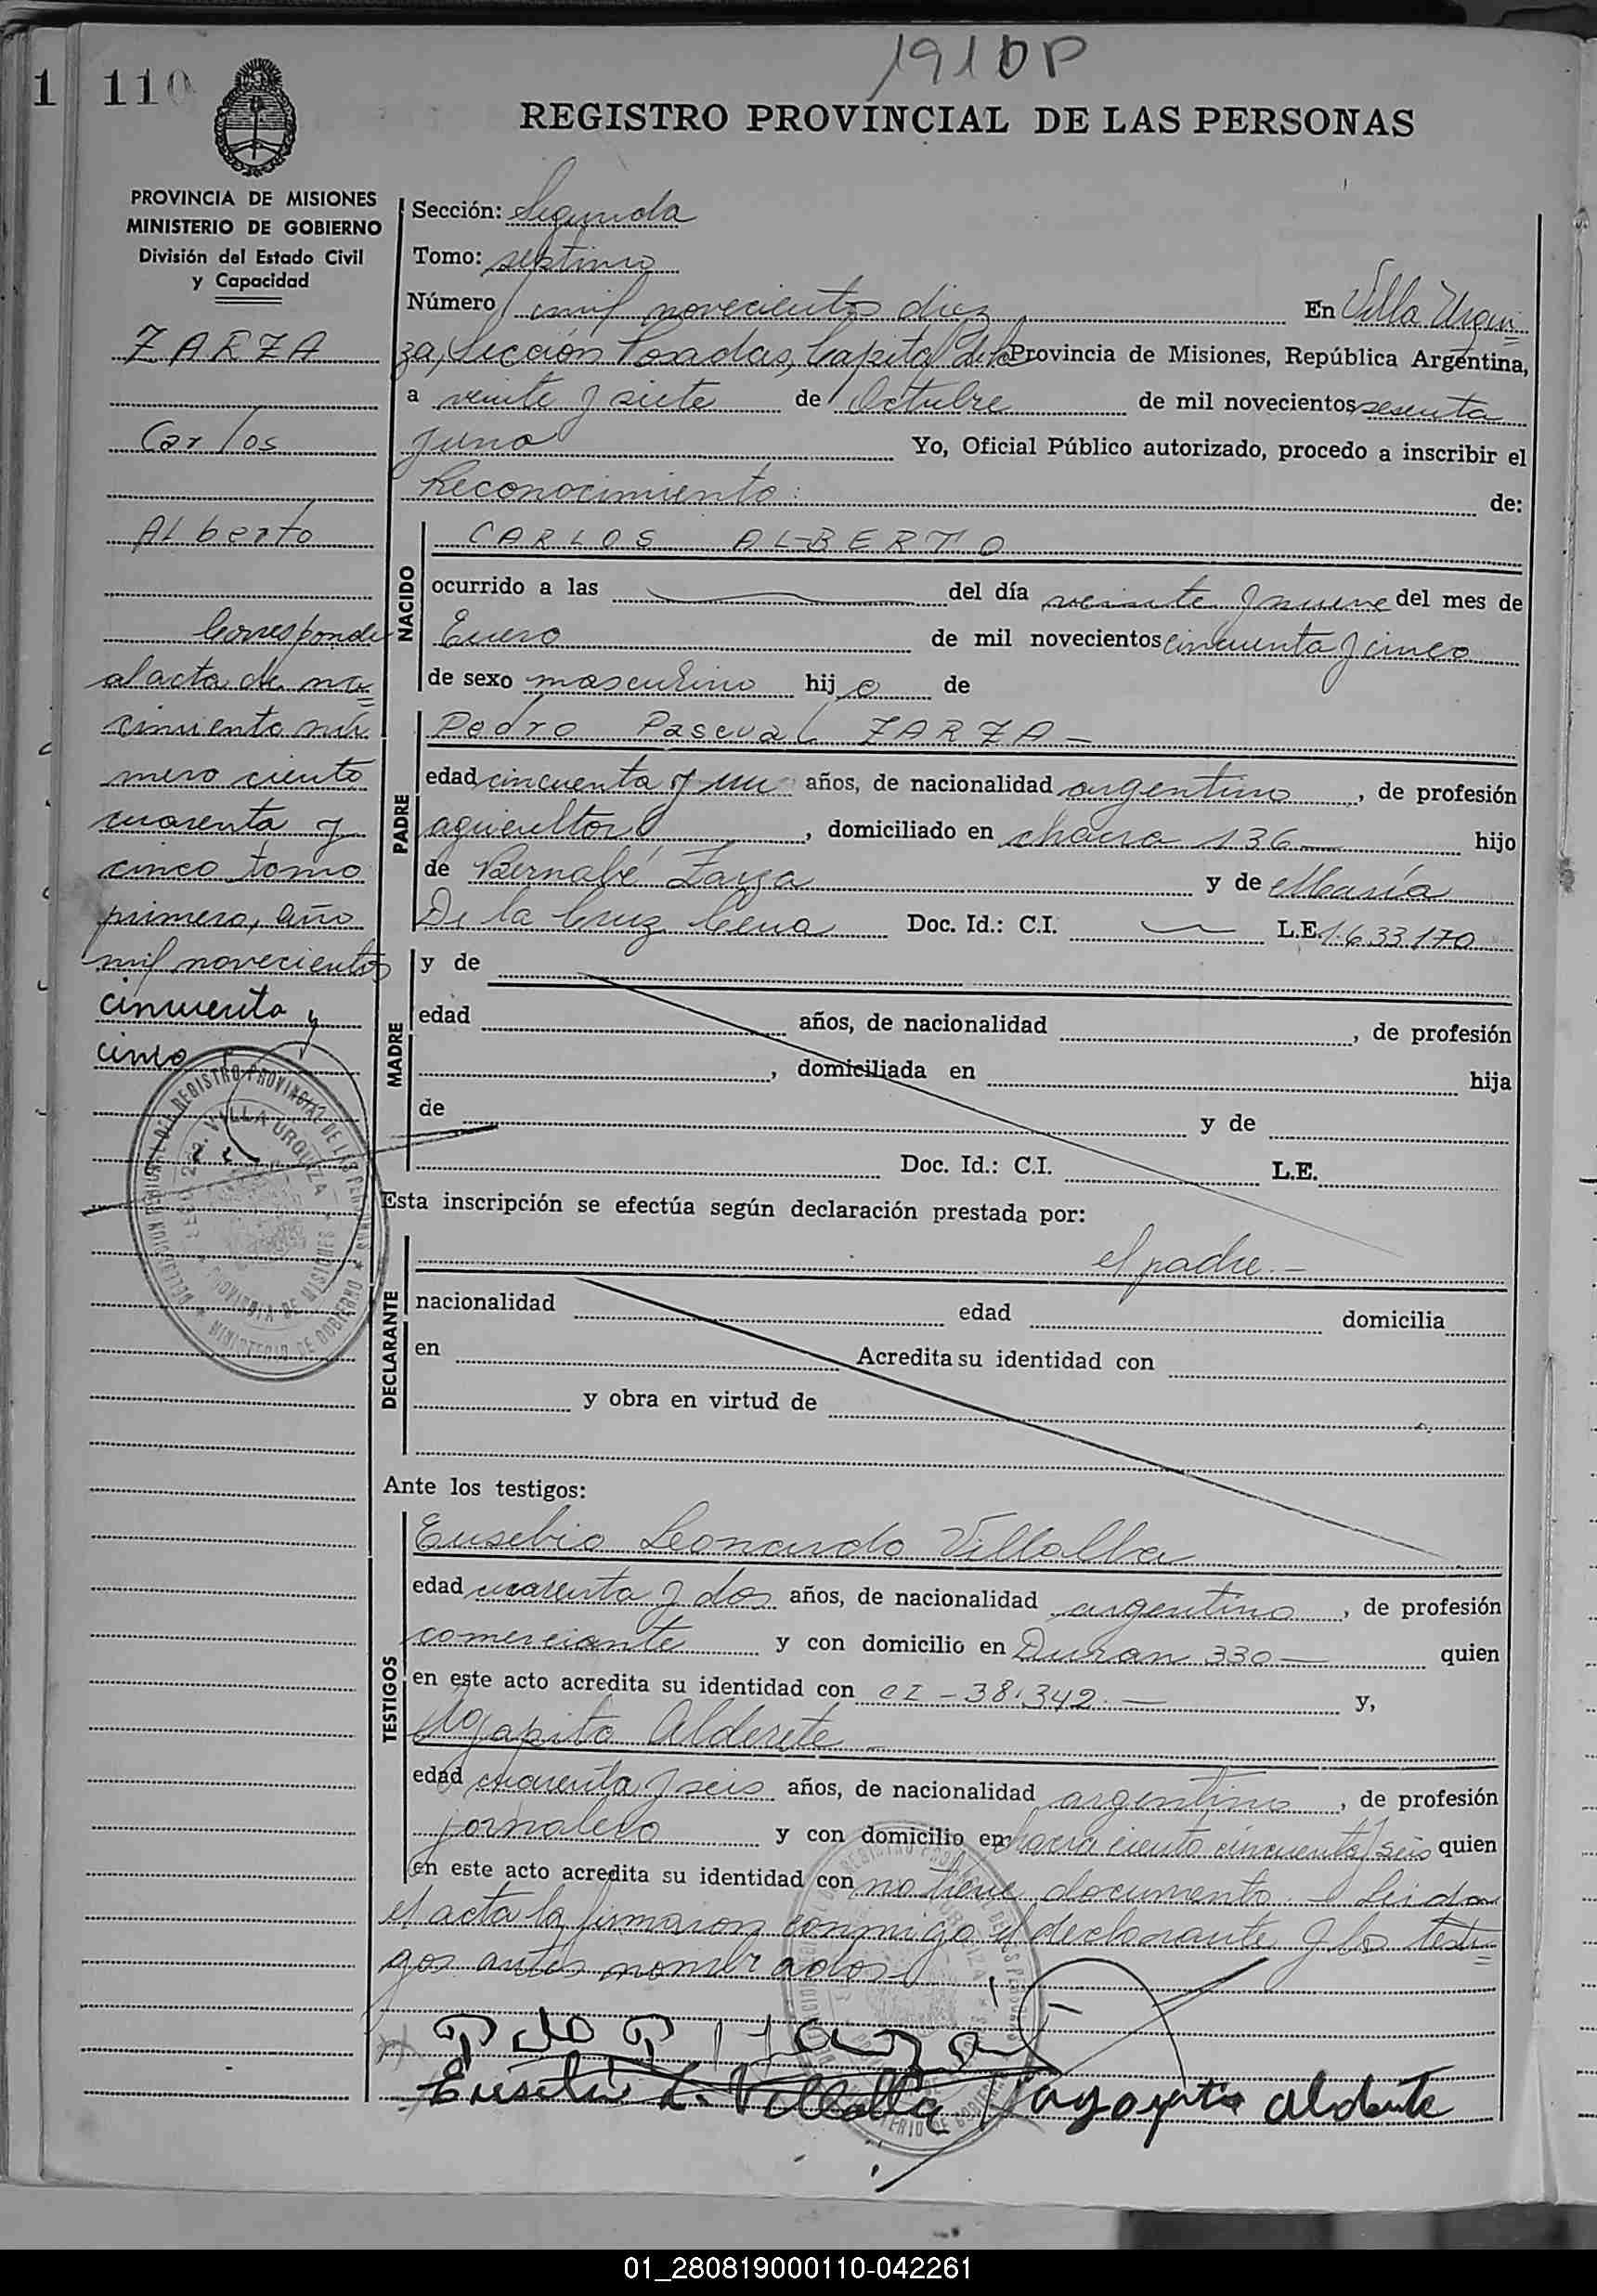 1910P
1 110
REGISTRO PROVINCIAL DE LAS PERSONAS
PROVINCIA DE MISIONES
MINISTERIO DE GOBIERNO
División del Estado Civil
y Capacidad
ZARZA
Carlos
Alberto
Corresponde
al acta de na=
cimiento nú
mero ciento
cuarenta y
cinco tomo
primero, año
mil novecientos
cincuenta y
cinco
Sección: Segunda
Tomo: septimo
Número mil novecientos diez En Villa Urqui=
za, Sección Posadas, Capital de la Provincia de Misiones, República Argentina,
a veinte y siete de Octubre de mil novecientos sesenta
y uno Yo, Oficial Público autorizado, procedo a inscribir el
Reconocimiento: de:
NACIDO
CARLOS ALBERTO
ocurrido a las del día veinte y nueve del mes de
Enero de mil novecientos cincuenta y cinco
de sexo masculino hijo de
PADRE
Pedro Pascual ZARZA -
edad cincuenta y un años, de nacionalidad argentino, de profesión
agricultor, domiciliado en chacra 136 hijo
de Bernabé Zarza y de María
De la Cruz Cena Doc. Id.: C.I. L.E. 1.633.170
MADRE
y de
edad años, de nacionalidad , de profesión
, domiciliada en hija
de y de
Doc. Id.: C.I. L.E.
Esta inscripción se efectúa según declaración prestada por:
DECLARANTE
el padre. -
nacionalidad edad domicilia
en Acredita su identidad con
y obra en virtud de
Ante los testigos:
TESTIGOS
Eusebio Leonardo Villalba
edad cuarenta y dos años, de nacionalidad argentino, de profesión
comerciante y con domicilio en Duran 330 — quien
en este acto acredita su identidad con CI - 38.342. — y,
Agapito Alderete -
edad cuarenta y seis años, de nacionalidad argentino, de profesión
jornalero y con domicilio en chacra ciento cincuenta y seis quien
en este acto acredita su identidad con no tiene documento. - Leida
el acta la firmaron conmigo el declarante y los testi=
gos antes nombrados
Eusebio L. Villalba
01_280819000110-042261